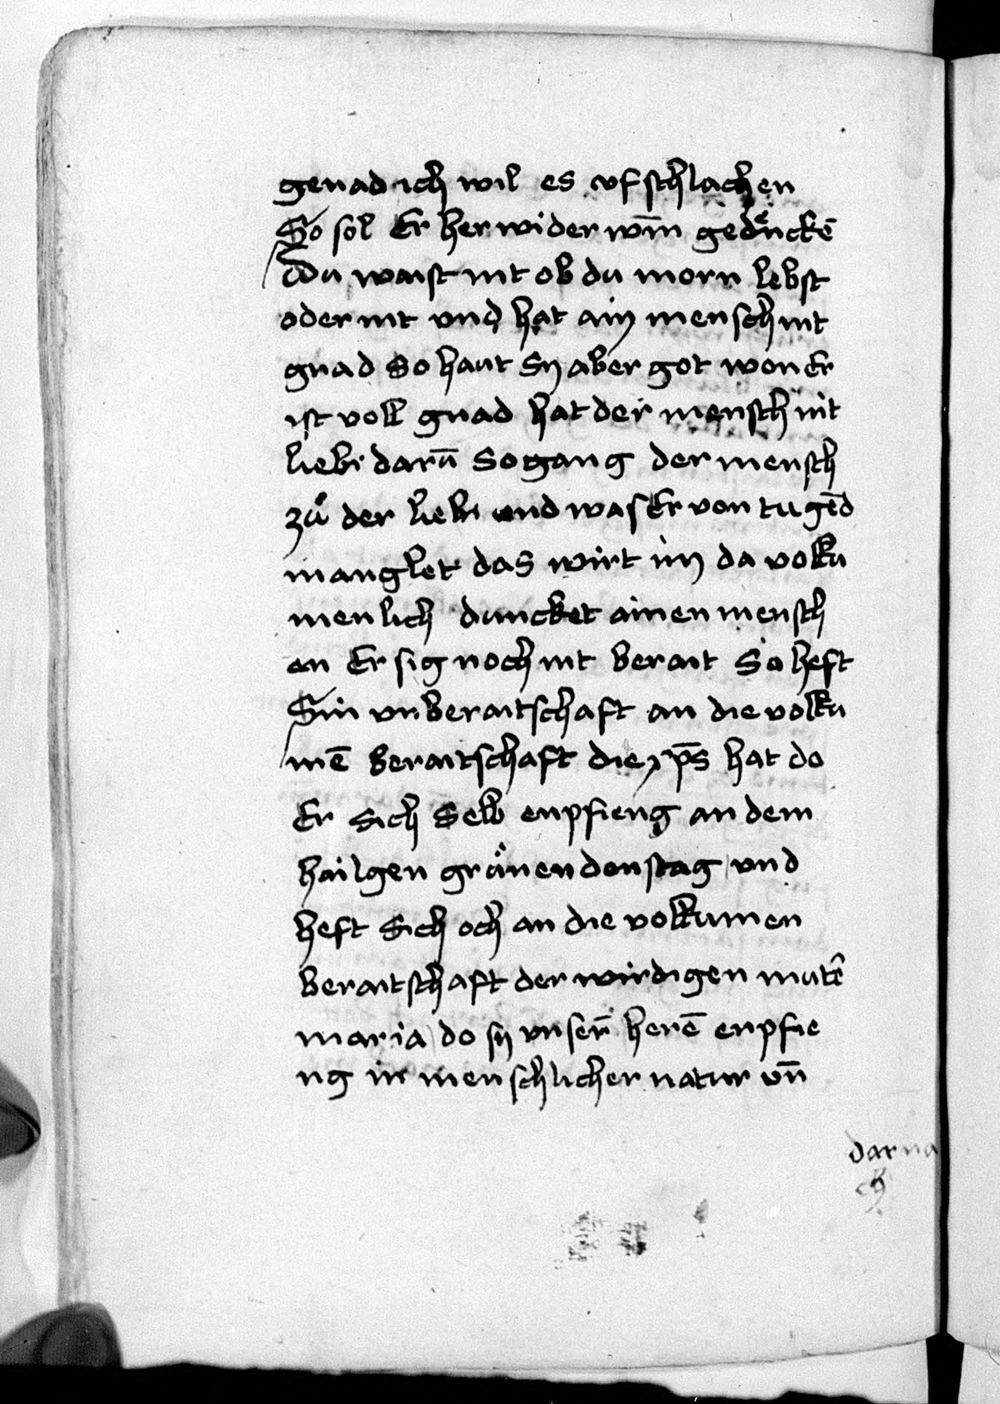 genad ich wil es vf schlachen
So sol Er her wider wm̄ gedenckē
Du waist nit ob du morn lebst
oder nit vnd hat ain mensch nit
gnad So haut Sy aber got won Er
ist voll gnad hat der mensch nit
liebi darū So gang der mensch
zů der liebi vnd was Er von tugēd
manglet das wirt im da volku
menlich duncket ainen mensch
en Er sig noch nit berait So heft
Sin vnberaitschaft an die volku
mē beraitschaft die xp̄s hat do
Er Sich Selb enpfieng an dem
hailgen grůnendonstag vnd
heft Sich och an die volkumen
beraitschaft der wirdigen mutē
maria do sy vnser̄ herē enpfie
ng in menschlicher natur vn̄
darna
ch